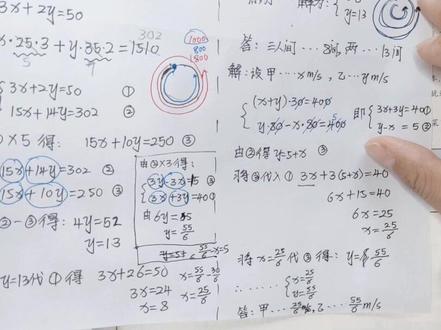 3x+2y=50
x·25·3+y·35·2=1510
302
1000
800
1800
3x+2y=50 ①
15x+14y=302 ②
①×5 得: 15x+10y=250 ③
15x+14y=302 ②
15x+10y=250 ③
②-③得: 4y=52
y=13
y=13代①得 3x+26=50
3x=24
x=8
由②×3得:
3y-3x=15 ③
3x+3y=40 ①
由 6y=55
y=55/6
x=25/6
y=13
答: 三人间…8间,两…13间
解: 设甲…xm/s, 乙…ym/s
(x+y)·30=400
y·80-x·80=400
即 3x+3y=40 ①
y-x=5 ②
由②得y=5+x ③
将③代入① 3x+3(5+x)=40
6x+15=40
6x=25
x=25/6
将x=25/6代③得: y=55/6
x=25/6
y=55/6
答: 甲…25/6, 乙…55/6 m/s